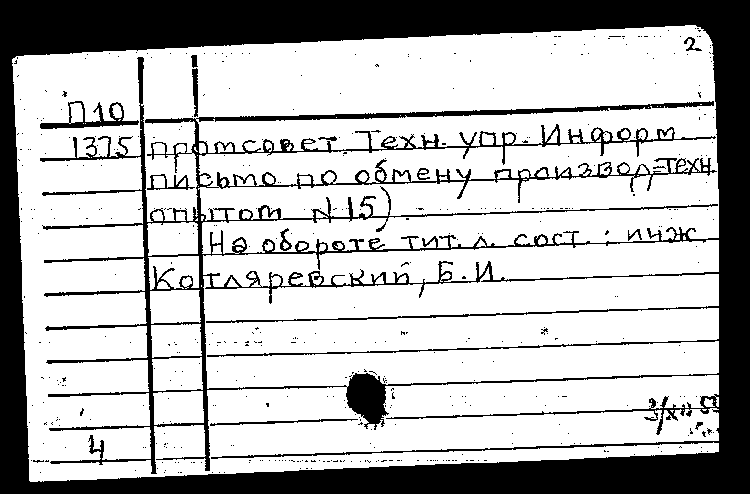 2
П10
1375 промсовет. Техн. упр. Информ
письмо по обмену производ=техн.
опытом №15)
На обороте тит. л. сост.: инж.
Котляревский, Б.И.
3/XII 55
4